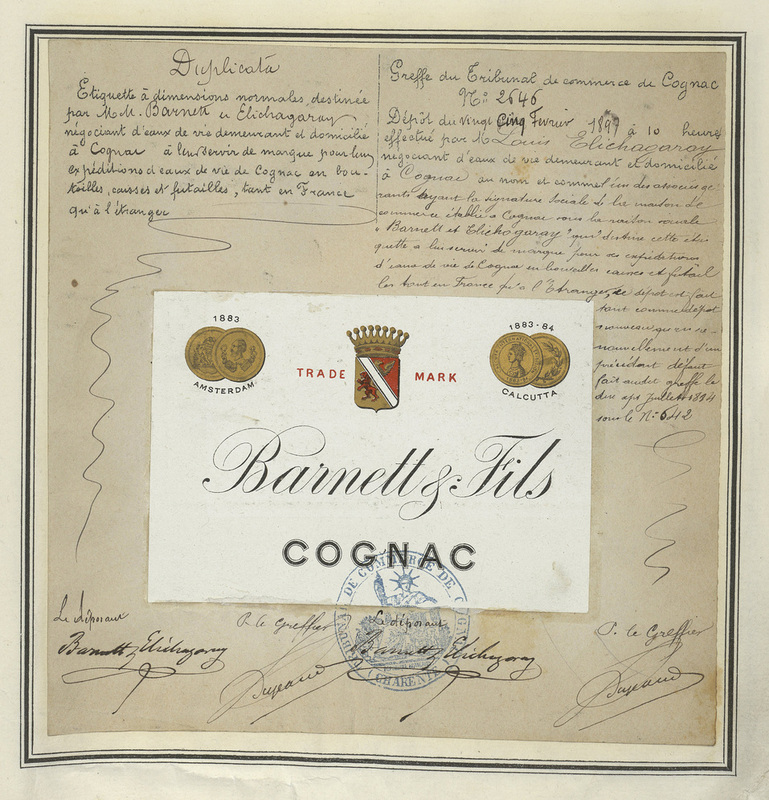 Duplicata
Etiquette à dimensions normales, destinée
par M.M. Barnett et Elichagaray
négociant d'eaux de vie demeurant et domicilié
à Cognac à leur servir de marque pour leurs
expéditions d'eaux de vie de Cognac en bou-
teilles, caisses et futailles, tant en France
qu'à l'étranger
Greffe du Tribunal de commerce de Cognac
No: 2646
Dépôt du vingt Cinq Fevrier 1899 à 10 heures
effectué par M. Louis Elichagaray
négociant d'eaux de vie demeurant et domicilié
à Cognac au nom et comme l'un des associés gé-
rants ayant la signature sociale de la maison de
commerce établie à Cognac sous la raison sociale
"Barnett et Elichagaray" qui destine cette éti-
quette à lui servir de marque pour ses expéditions
d'eaux de vie de Cognac en bouteilles caisses et futail
les tant en France qu'à l'Etranger, ce dépôt est fait
tant comme dépôt
nouveau que en re-
nouvellement d'un
précédent dépôt
fait audit greffe le
dix sept juillet 1884
sous le No: 642
1883
AMSTERDAM
TRADE MARK
1883-84
CALCUTTA
Barnett & Fils
COGNAC
TRIBUNAL DE COMMERCE DE COGNAC
(CHARENTE)
Le déposant
Barnett & Elichagaray
P. le Greffier
Le déposant
Barnett & Elichagaray
P. le Greffier